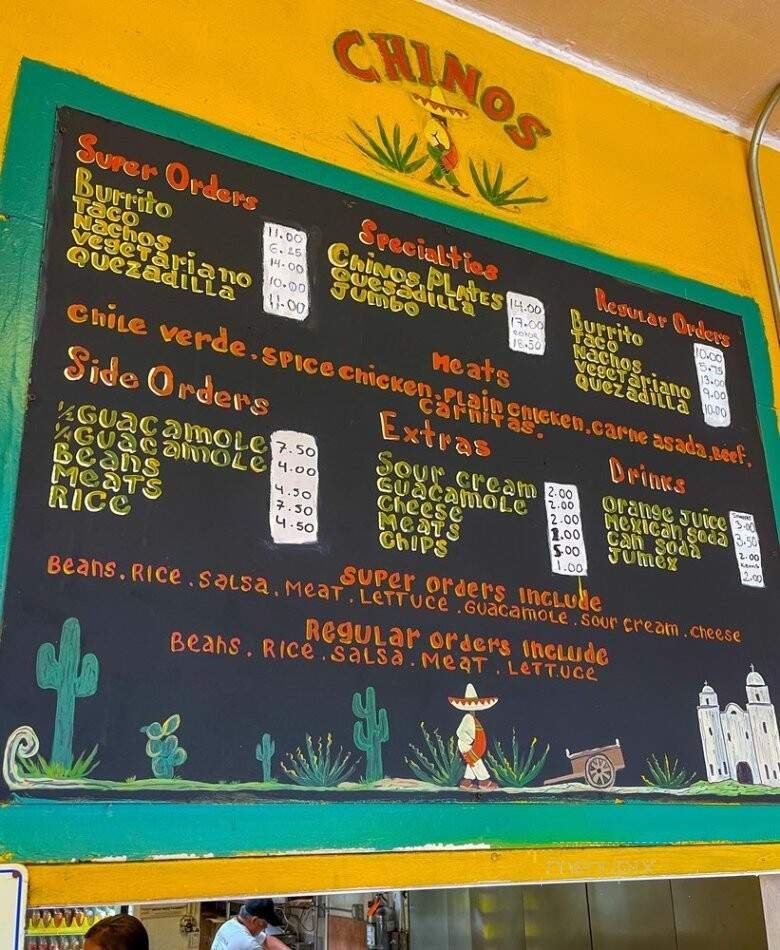 CHINOS
Super Orders
Burrito
Taco
Nachos
vegetariano
Quezadilla
11.00
6.25
14.00
10.00
11.00
Specialties
Chinos PLATES
Quesadilla
Jumbo
14.00
17.00
18.50
Regular Orders
Burrito
Taco
Nachos
vegetariano
Quezadilla
10.00
5.75
13.00
9.00
10.00
Meats
Chile verde.spice chicken.Plain chicken.carne asada.Beef.
CARNITAS.
Side Orders
½ GUACAMOLE
¼ GUACAMOLE
Beans
MeATS
RICE
7.50
4.00
4.50
7.50
4.50
Extras
Sour cream
GUACAMOLE
cheese
MeATS
CHIPS
2.00
2.00
2.00
5.00
1.00
Drinks
Orange Juice
Mexican soda
can soda
Jumex
3.00
3.50
2.00
2.00
Super orders include
Beans.RICe.salsa.MeaT.LeTTUCE.GUACAMOLE.SOUR CREAM.cheese
Regular orders include
Beans.RICE.SALSA.MEAT.LETTUCE
menupix